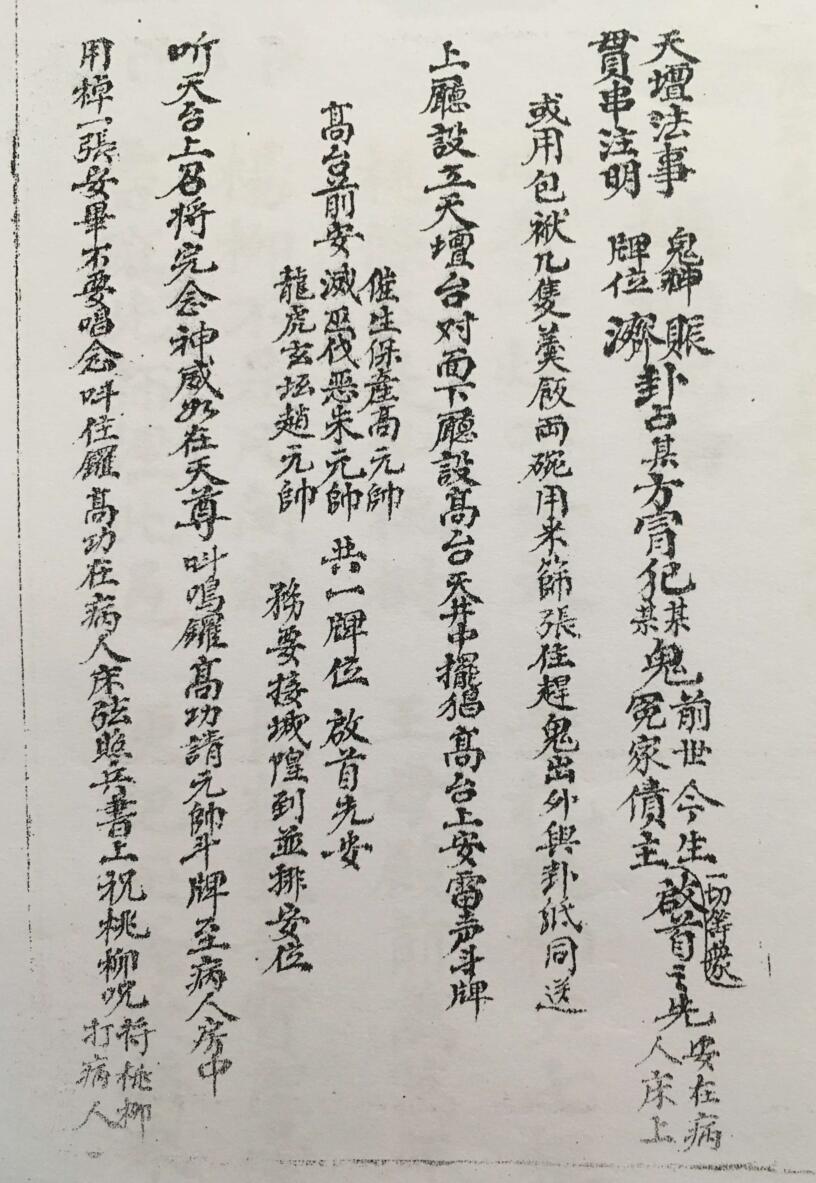 天壇法事
貫串注明
鬼神
牌位
賑濟
卦占某方冐犯
某
某
鬼
前世今生
冤家債主
一切等衆
啟首
先
安在病
人床上
或用包袱几隻羹飯両碗用米篩張住趕鬼出外與卦紙同送
上廳設立天壇台对面下廳設高台天井中擺猖高台上安雷声斗牌
高台前安
催生保產高元帥
滅巫伐恶朱元帥
龍虎玄坛趙元帥
共一牌位
啟首先安
務要接城隍到並排安位
听天台上召将完念神威如在天尊呌鳴鑼高功請元帥斗牌至病人房中
用棹一張安畢不要唱念呌住鑼高功在病人床弦照兵書上祝桃柳咒
将桃柳
打病人